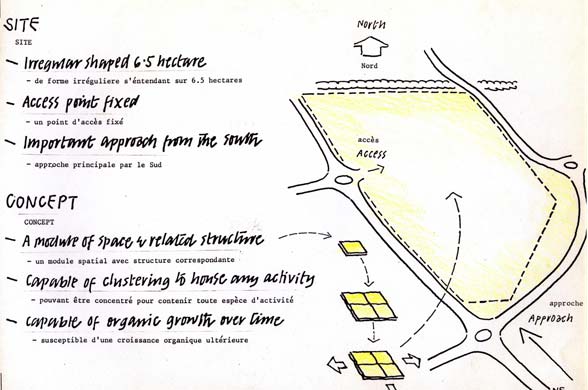 SITE
SITE
— Irregular shaped 6.5 hectare
- de forme irrégulière s'éntendant sur 6.5 hectares
— Access point fixed
- un point d'accès fixé
— Important approach from the south
- approche principale par le Sud
CONCEPT
CONCEPT
— A module of space & related structure
- un module spatial avec structure correspondante
— Capable of clustering to house any activity
- pouvant être concentré pour contenir toute espèce d'activité
— capable of organic growth over time
- susceptible d'une croissance organique ultérieure
North
Nord
accès
Access
approche
Approach